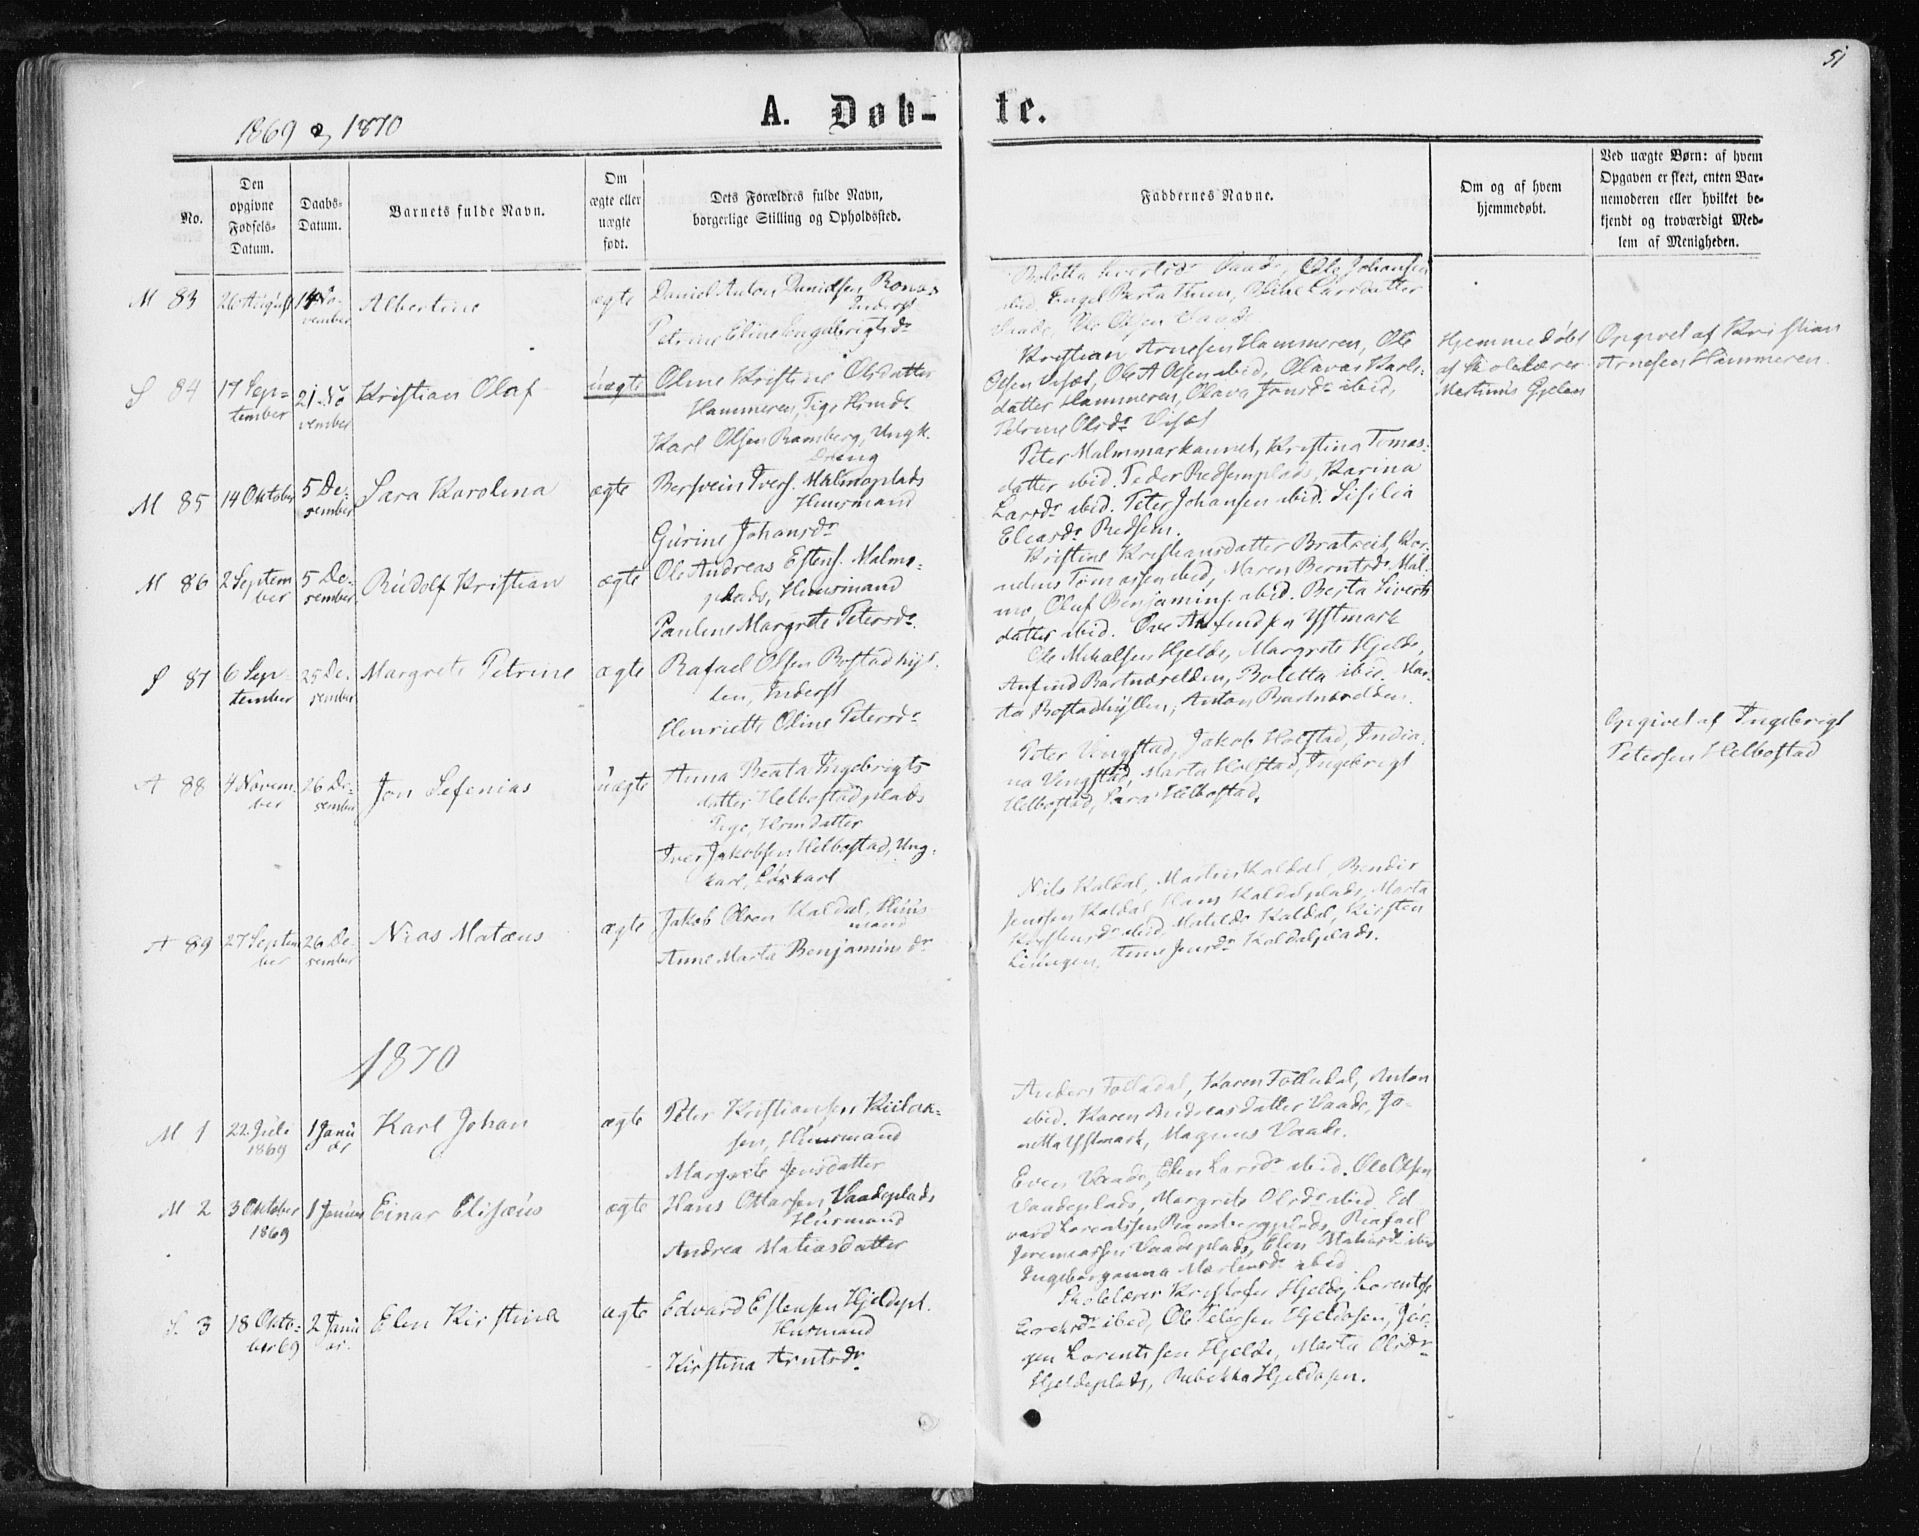 51
1869 & 1870
A. Døb-
te.
No.
Den
opgivne
Fødsels-
Datum.
Daabs-
Datum.
Barnets fulde Navn.
Om
ægte eller
uægte
født.
Dets Forældres fulde Navn,
borgerlige Stilling og Opholdssted.
Faddernes Navne.
Om og af hvem
hjemmedøbt.
Ved uægte Børn: af hvem
Opgaven er skeet, enten Bar-
nemoderen eller hvilket be-
kjendt og troværdigt Med-
lem af Menigheden.
M 83
26 August
14 No-
vember
Albertine
ægte
Daniel Anton Danielsen
Inderst
Petrine Eline Engebrigtsdr
Ole Johansen
ibid, Engel Berta
Larsdatter
Ole Olsen Vaad
S 84
17 Sep-
tember
21 No
vember
Kristian Olaf
uægte
Oline Kristine Olsdatter
Hammeren, Pige
Karl Olsen Ramberg, Ungk.
Dreng
Kristian Arnesen Hammeren, Ole
Olsen Viset, Ole A Olsen ibid, Olava Karls-
datter Hammeren, Olava Jonsdr ibid,
Petrine Olsdr Viset
Hjemmedøbt
af Skolelærer
Martinus Gjelan
Opgivet af Kristian
Arnesen Hammeren
M 85
14 Oktober
5 De-
sember
Sara Karolina
ægte
Bersvein Ivers. Malmoplads
Huusmand
Gurine Johansdr
Peter Malmmarkaunet, Kristina Tomas-
datter ibid. Peder Redsemplads, Karina
Larsdr ibid. Peter Johansen ibid. Sisilia
Eliasdr Redsem.
M 86
2 Septem
ber
5 De-
sember
Rudolf Kristian
ægte
Ole Andreas Estens. Malmo-
plads, Huusmand
Pauline Margrete Petersdr.
Kristine Kristiansdatter Bratreit, Kor-
nelius Tomassen ibid, Maren Berntsdr Mal-
mo, Oluf Benjamins. ibid. Berta Siverts
datter ibid. Ove Ystmark
S 87
6 Sep-
tember
25 De-
sember
Margrete Petrine
ægte
Rafael Olsen Bostadhyl-
len, Inderst
Henriette Oline Petersdr
Ole Mikalsen Hjelde, Margrete Hjelde,
Anfind Bartnæselden, Boletta ibid. Mar-
ta Bostadhyllen, Anton
A 88
4 Novem-
ber
26 De-
sember
Jon Sefenias
uægte
Anna Beata Ingebrigts
datter Helbostadplads
Pige,
Iver Jakobsen Helbostad, Ung-
karl, Løskarl
Peter Vengstad, Jakob Holstad, India-
na Vengstad, Marta Holstad, Ingebrigt
Helbostad, Sara Helbostad.
Opgivet af Ingebrigt
Petersen Helbostad
A 89
27 Septem
ber
26 De-
sember
Nias Matæus
ægte
Jakob Olsen Kaldal, Huus-
mand
Anne Marta Benjaminsdr
Nils Kaldal, Martin Kaldal,
Jensen Kaldal, Hans Kaldalplads, Marta
ibid, Matilde Kaldal, Kirsten
Anne Jensdr Kaldalplads.
1870
M 1
22 Juli
1869
1 Janu
ar
Karl Johan
ægte
Peter Kristiansen Kiilaa-
sen, Huusmand
Margrete Jensdatter
Anders Folladal, Karen Folladal, Anton
ibid. Karen Andreasdatter Vaade, Jo-
netta Ystmark, Magnus Vaade.
M 2
3 Oktober
1869
1 Januar
Einar Elisæus
ægte
Hans Ottarsen Vaadeplads
Husmand
Andrea Matiasdatter
Even Vaade, Elen Larsdr ibid. Ole Olsen
Vaadeplads, Margrete Olsdr ibid. Ed
vard Lorentsen Rambergplads, Rafael
Jeremiassen Vaadeplads, Elen Matiasdr ibid
Ingeborganna Martinsdr ibid
S. 3
18 Okto-
ber 69
2 Janu
ar.
Elen Kirstina
ægte
Edvard Estensen Hjeldepl.
Husmand
Kirstina Arntsdr
Skolelærer Kristofer Hjelde, Lorentse
ibid, Ole Petersen Hjeldaasen, Jør-
gen Lorentssen Hjelde, Marta Olsdr
Hjeldeplads, Rebekka Hjeldaasen.